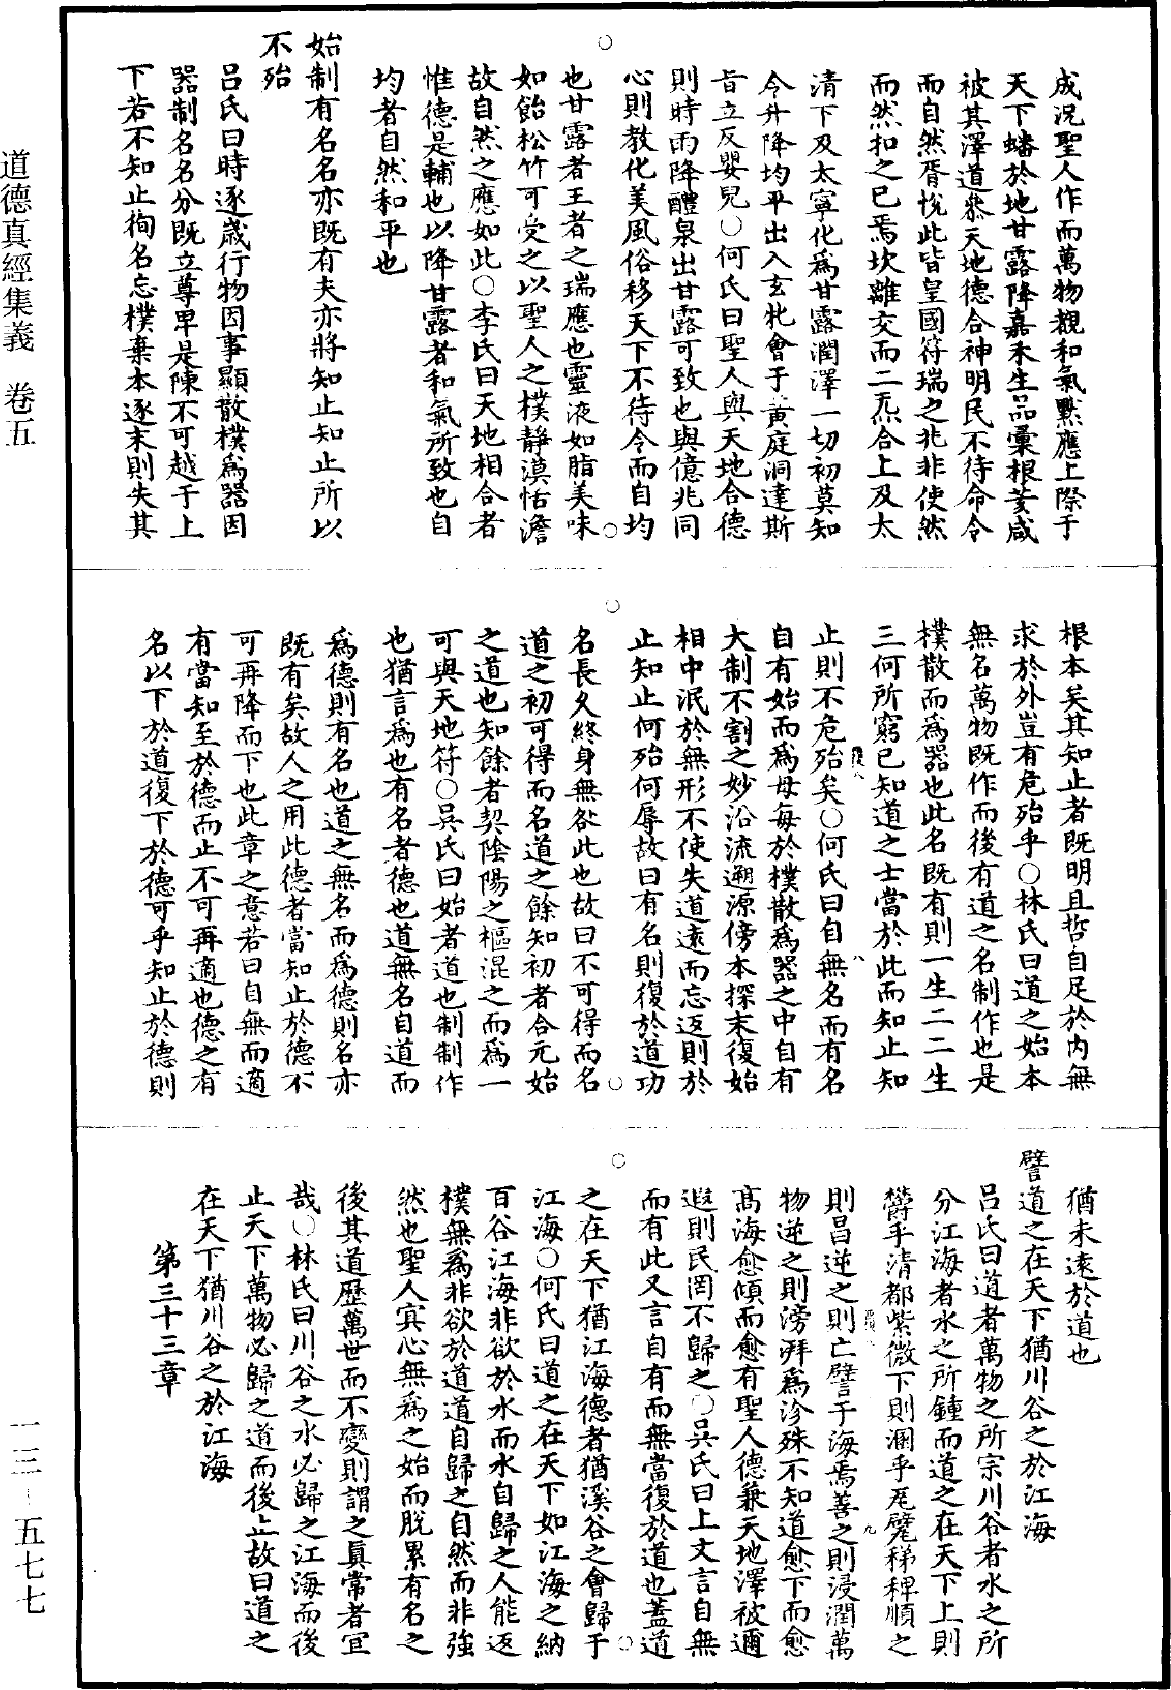 成況聖人作而萬物覩和氣熙應上際于
天下蟠於地甘露降嘉禾生品彙根荄咸
被其澤道叅天地德合神明民不待命令
而自然胥悅此皆皇國符瑞之兆非使然
而然扣之已焉坎離交而二炁合上及太
清下及太寧化爲甘露潤澤一切初莫知
令升降均平出入玄牝會于黄庭洞達斯
旨立反嬰兒○何氏曰聖人與天地合德
則時雨降醴泉出甘露可致也與億兆同
心則教化美風俗移天下不待令而自均
也甘露者王者之瑞應也靈液如脂美味
如飴松竹可受之以聖人之樸靜漠恬澹
故自然之應如此○李氏曰天地相合者
惟德是輔也以降甘露者和氣所致也自
均者自然和平也
始制有名名亦既有夫亦將知止知止所以
不殆
吕氏曰時逐歲行物因事顯散樸爲器因
器制名名分既立尊卑是陳不可越于上
下若不知止徇名忘樸棄本逐末則失其
根本矣其知止者既明且哲自足於内無
求於外豈有危殆乎○林氏曰道之始本
無名萬物既作而後有道之名制作也是
樸散而爲器也此名既有則一生二二生
三何所窮已知道之士當於此而知止知
止則不危殆矣○何氏曰自無名而有名
自有始而爲母每於樸散爲器之中自有
大制不割之妙沿流遡源傍本探末復始
相中泯於無形不使失道遠而忘返則於
止知止何殆何辱故曰有名則復於道功
名長久終身無咎此也故曰不可得而名
道之初可得而名道之餘知初者合元始
之道也知餘者契陰陽之樞混之而爲一
可與天地符○吳氏曰始者道也制制作
也猶言爲也有名者德也道無名自道而
爲德則有名也道之無名而爲德則名亦
既有矣故人之用此德者當知止於德不
可再降而下也此章之意若曰自無而適
有當知至於德而止不可再適也德之有
名以下於道復下於德可乎知止於德則
猶未遠於道也
譬道之在天下猶川谷之於江海
吕氏曰道者萬物之所宗川谷者水之所
分江海者水之所鍾而道之在天下上則
欝乎清都紫微下則溷乎瓦甓稊稗順之
則昌逆之則亡譬于海焉善之則浸潤萬
物逆之則滂湃爲沴殊不知道愈下而愈
髙海愈傾而愈有聖人德兼天地澤被邇
遐則民罔不歸之○吳氏曰上文言自無
而有此又言自有而無當復於道也蓋道
之在天下猶江海德者猶溪谷之會歸于
江海○何氏曰道之在天下如江海之納
百谷江海非欲於水而水自歸之人能返
樸無爲非欲於道道自歸之自然而非強
然也聖人寘心無爲之始而脱累有名之
後其道歷萬世而不變則謂之真常者宜
哉○林氏曰川谷之水必歸之江海而後
止天下萬物必歸之道而後止故曰道之
在天下猶川谷之於江海
第三十三章
道德真經集義　卷五
一三－五七七